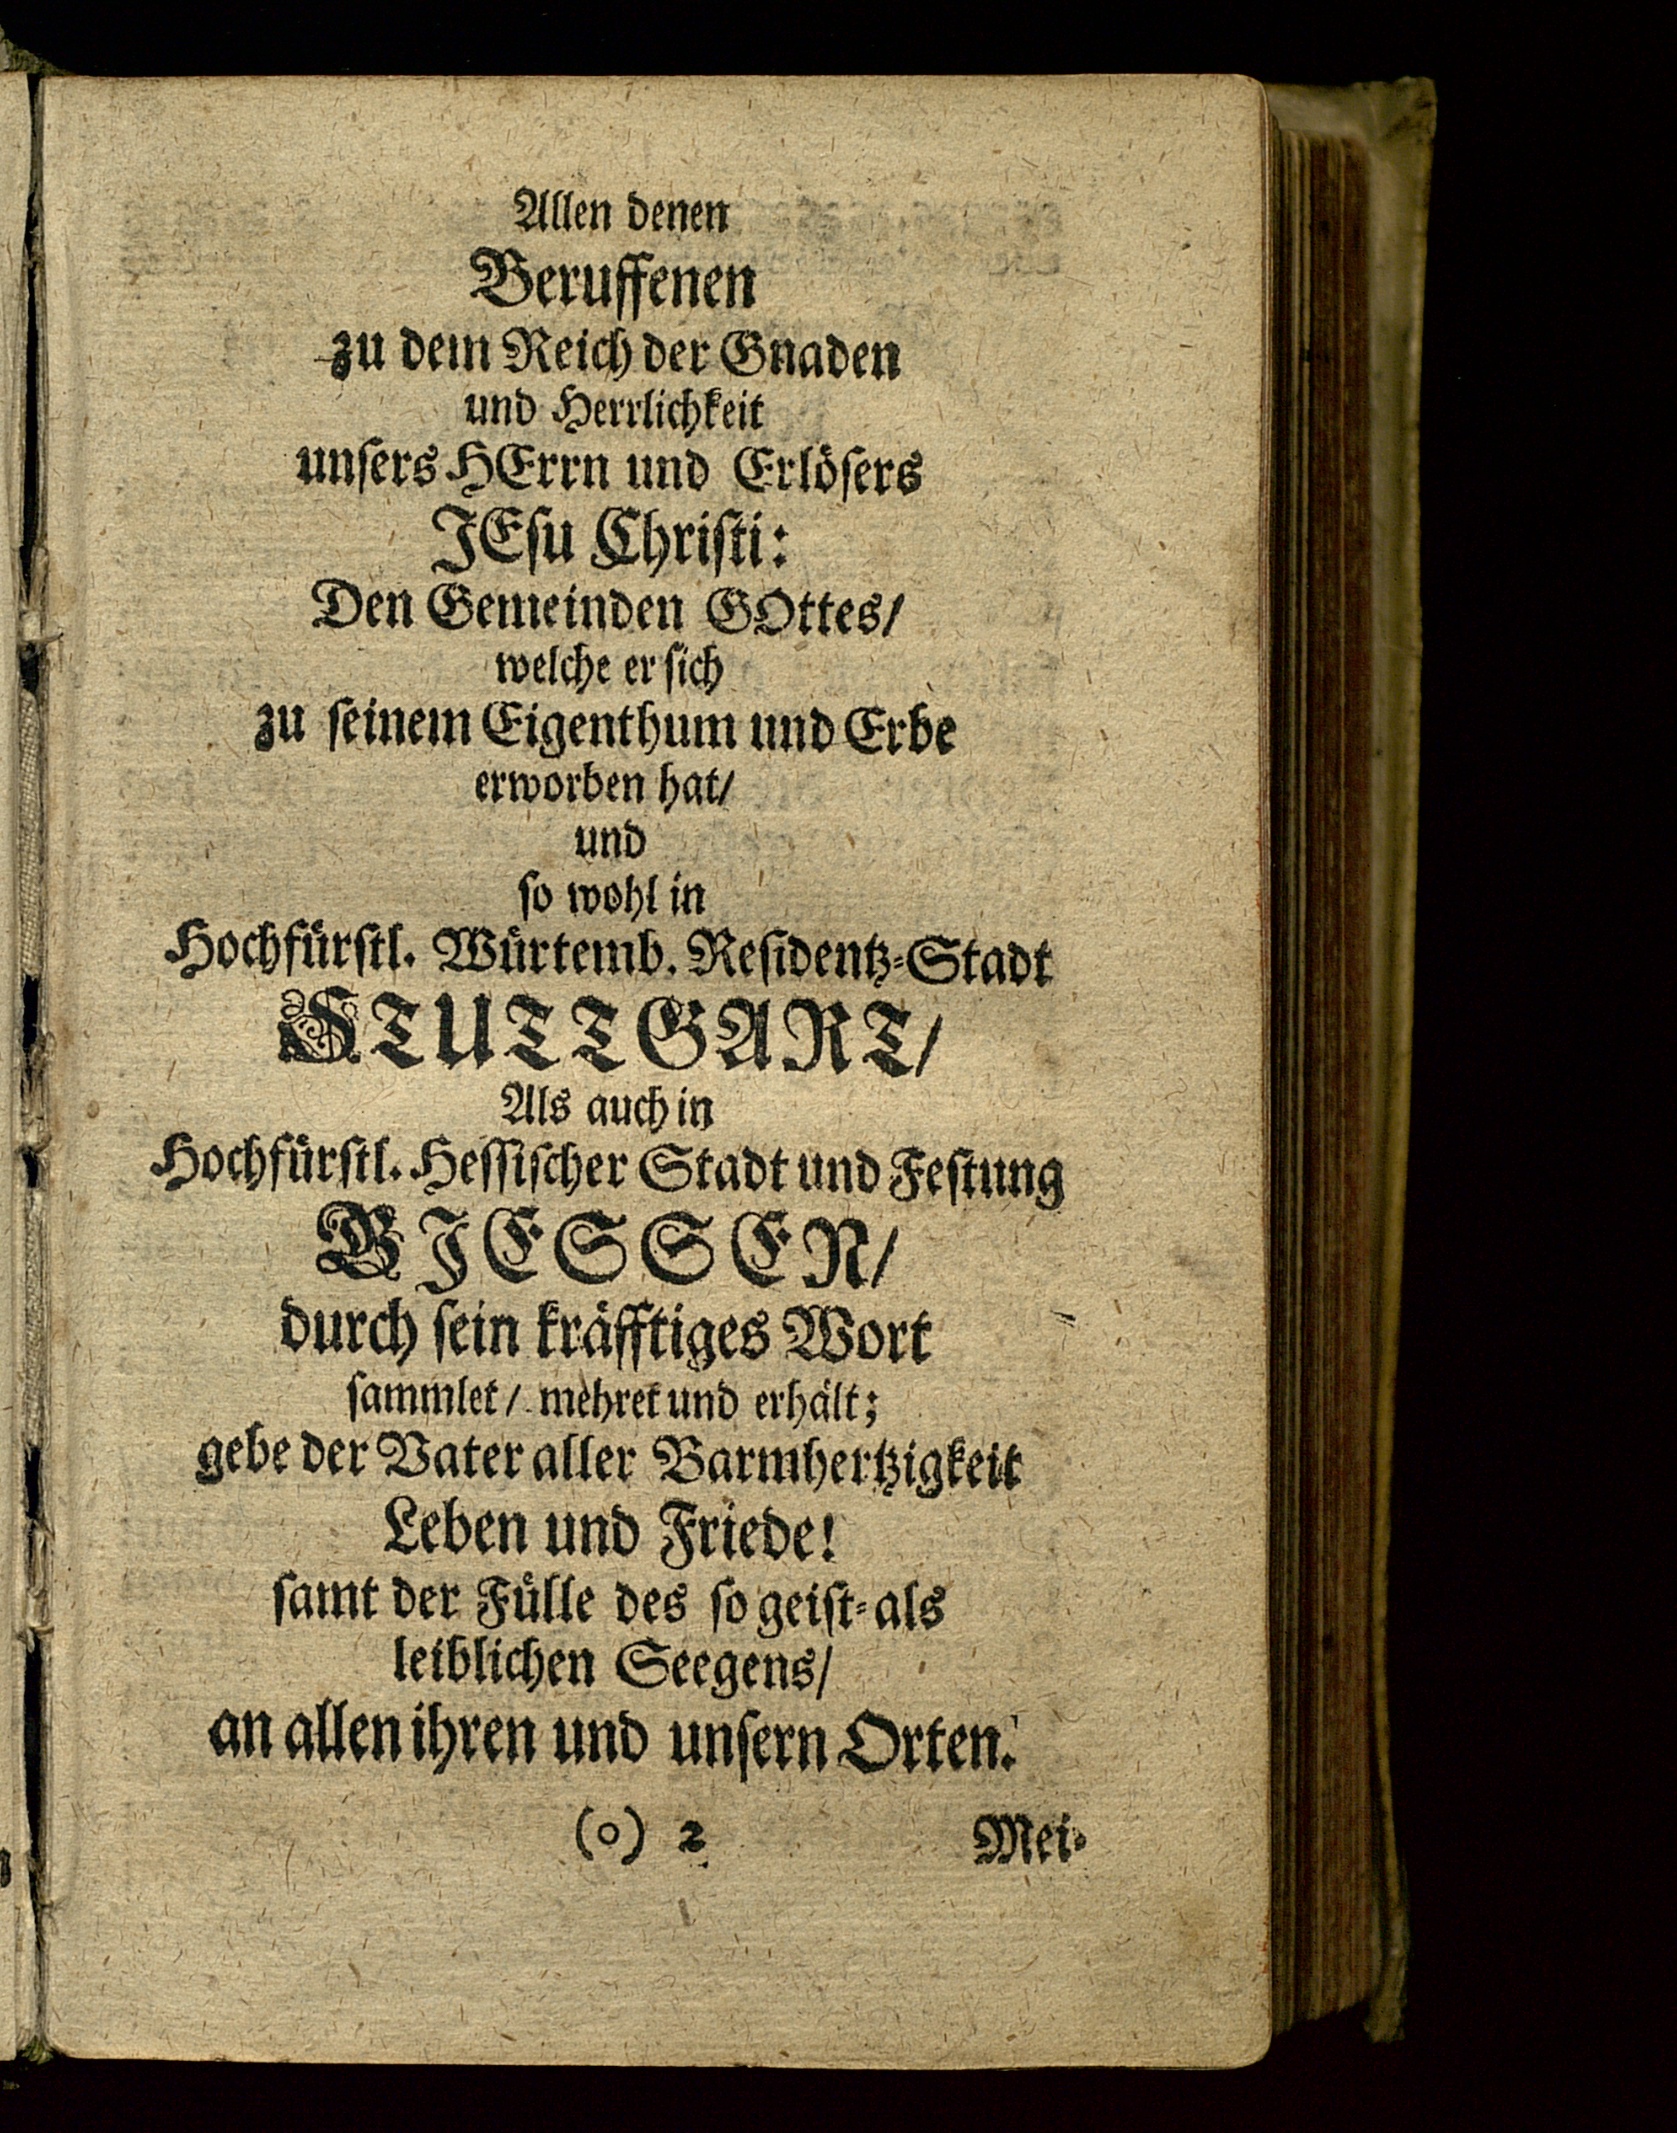 Allen denen
Beruffenen
zu dem Reich der Gnaden
und Herrlichkeit
unſers HErrn und Erlöſers
JEſu Chriſti:
Den Gemeinden GOttes/
welche er ſich
zu ſeinem Eigenthum und Erbe
erworben hat/
und
ſo wohl in
Hochfürſtl. Würtemb. Reſidentz-Stadt
STUTTGART/
Als auch in
Hochfürſtl. Heſſiſcher Stadt und Feſtung
GJESSEN/
durch ſein kräfftiges Wort
ſammlet/ mehret und erhält;
gebe der Vater aller Barmhertzigkeit
Leben und Friede!
ſamt der Fülle des ſo geiſt-als
leiblichen Seegens/
an allen ihren und unſern Orten.
(o) 2 Mei-